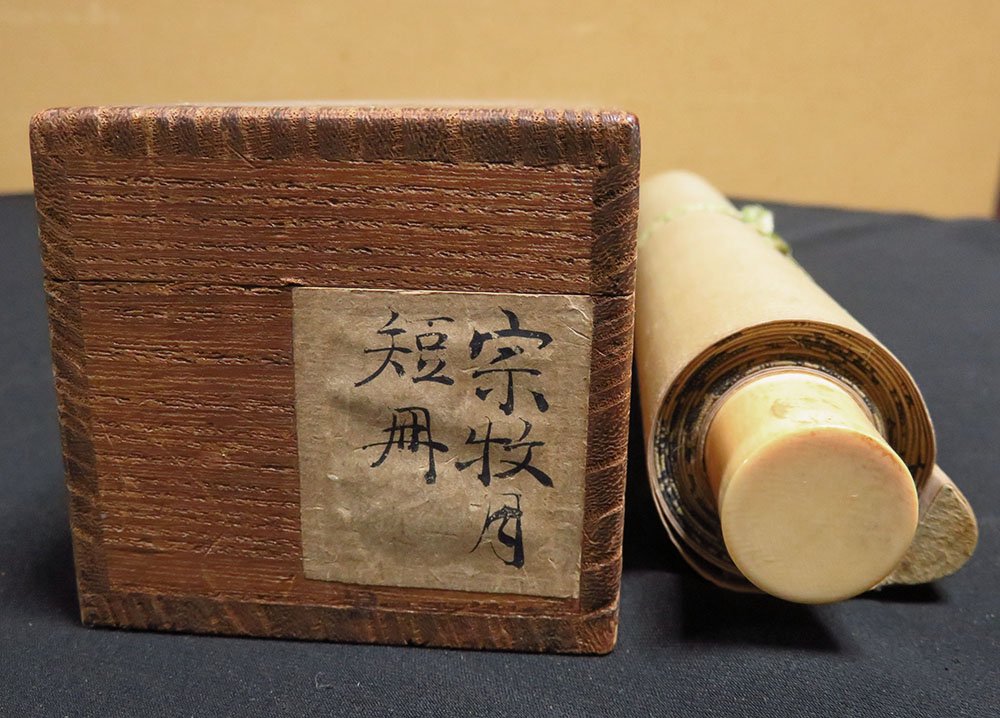 宗牧月
短冊